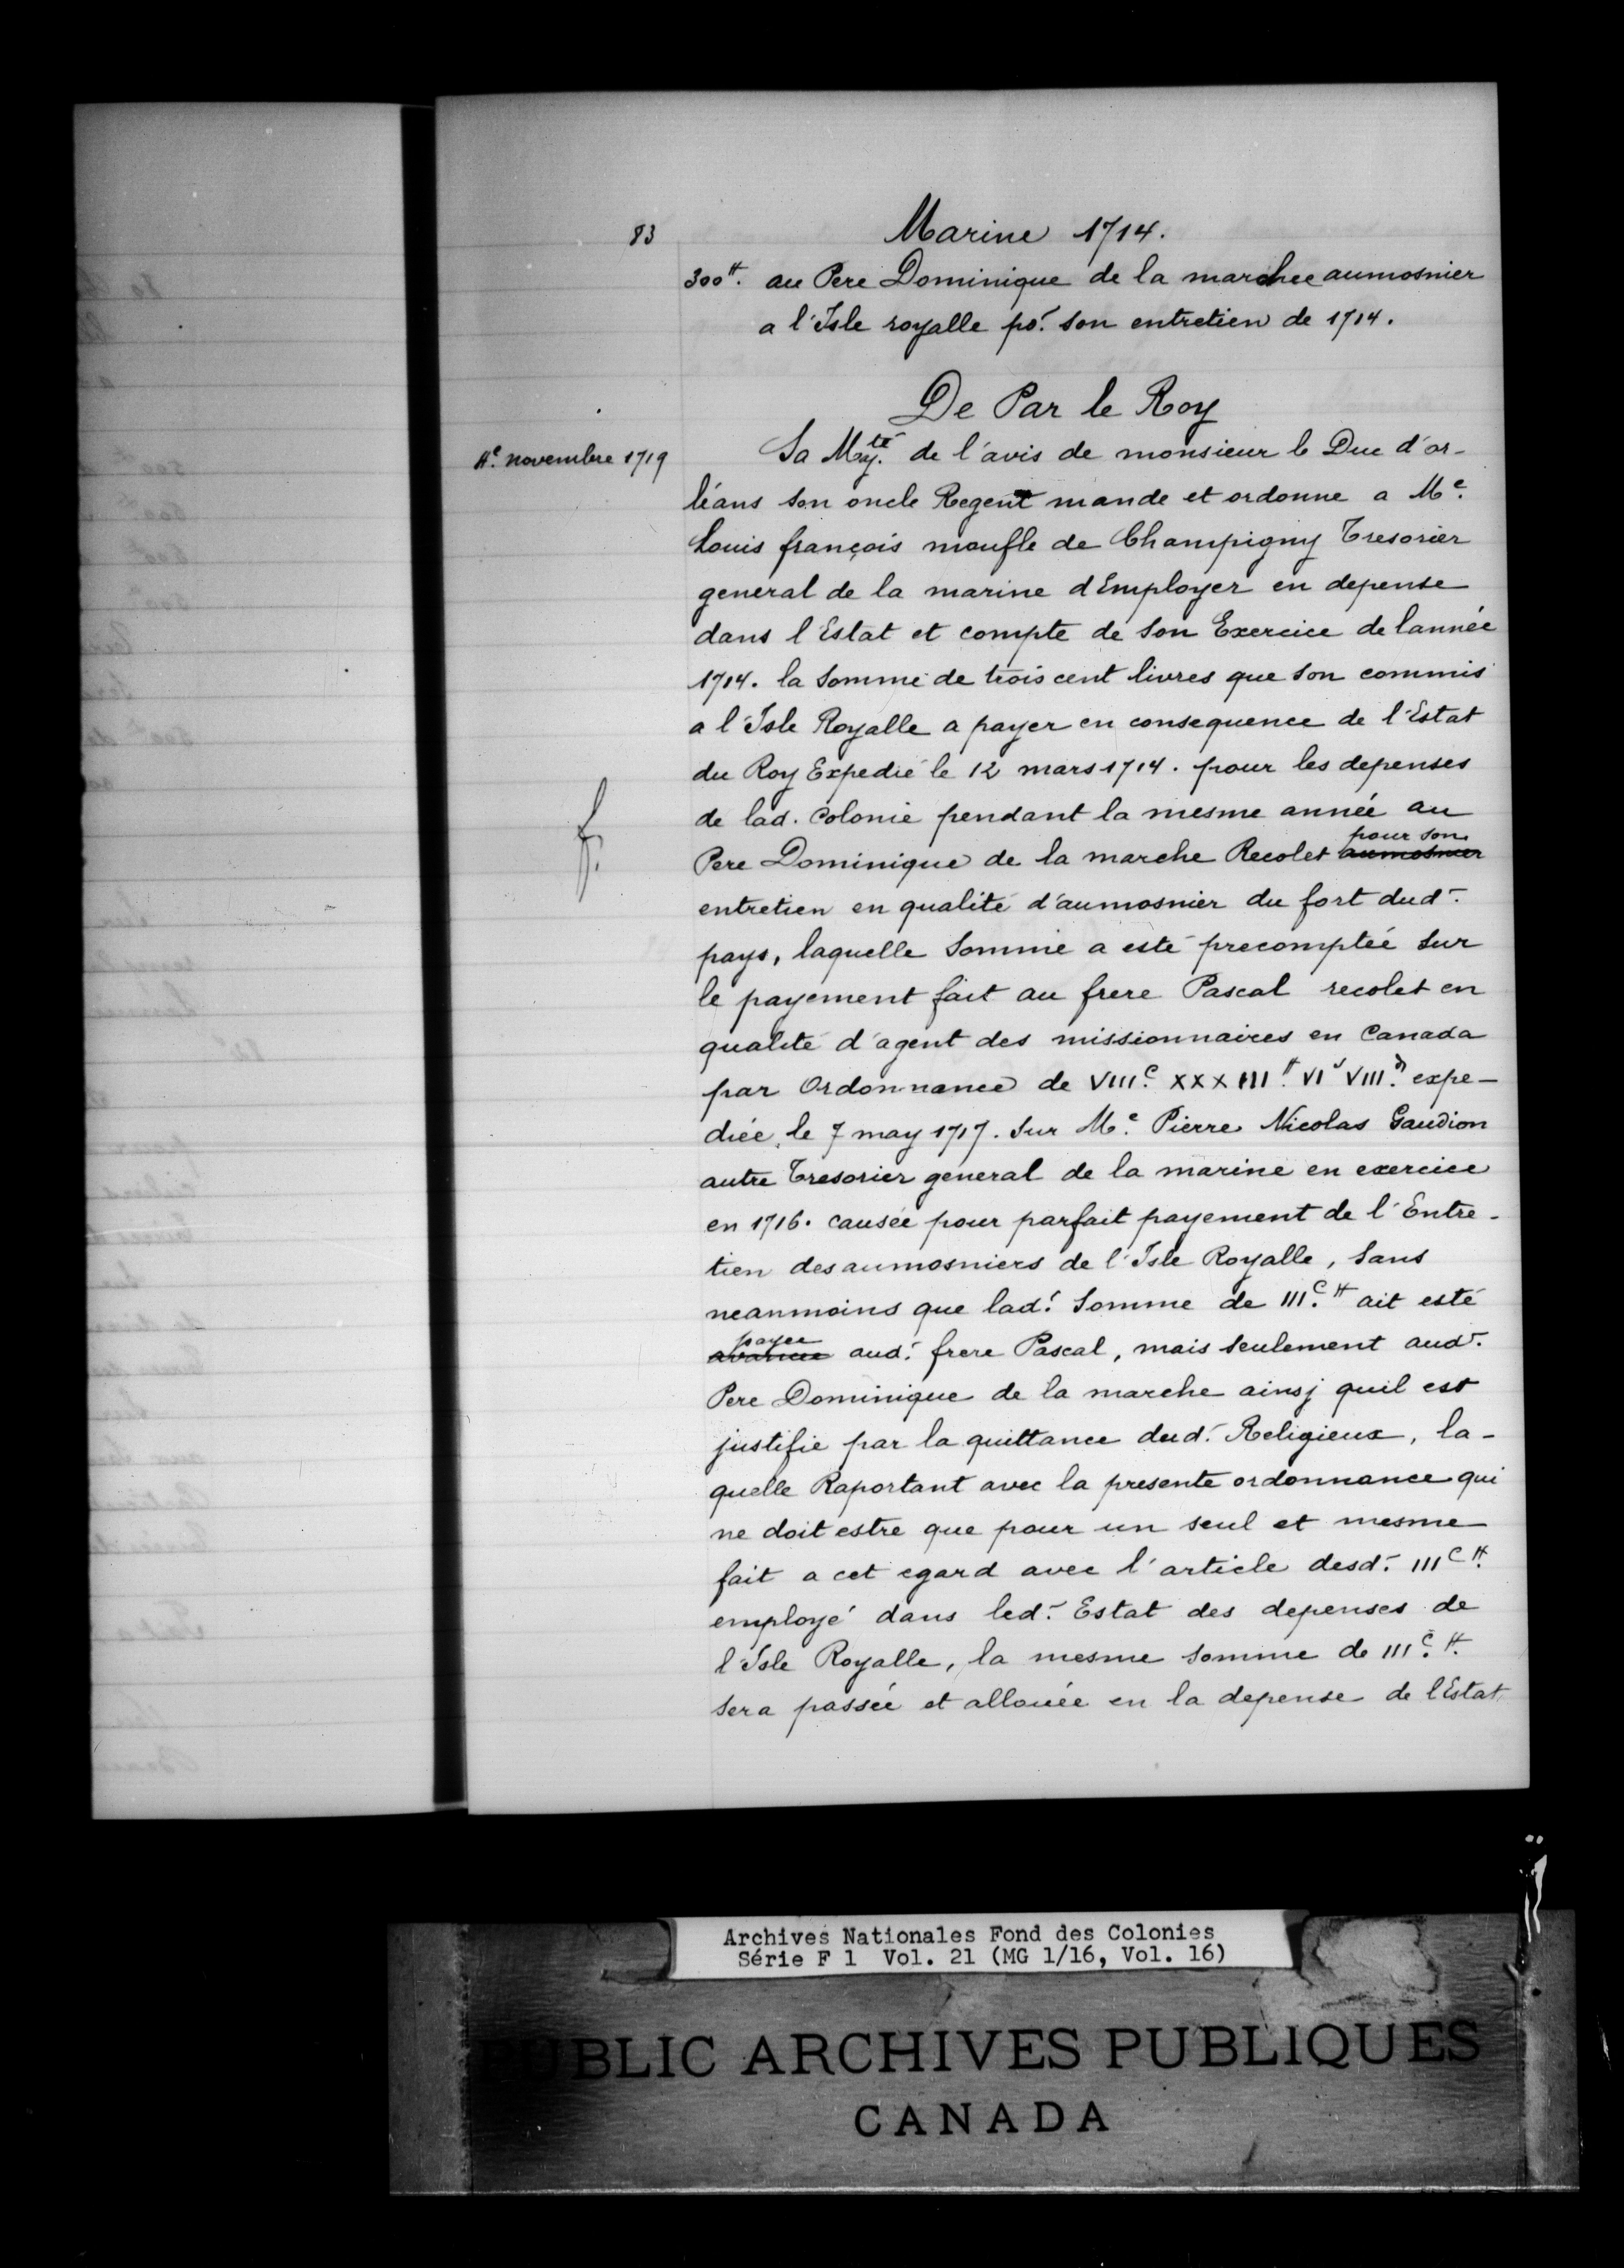 83
Marine 1714.
300ᴴ. au Pere Dominique de la marchee aumosnier
a l'Isle royalle po.ʳ son entretien de 1714.
De Par le Roy
novembre 1719
Sa May.ᵗé de l'avis de monsieur le Duc d'or-
léans son oncle Regent mande et ordonne a M.ᵉ
Louis françois moufle de Champigny Tresorier
general de la marine d'Employer en depense
dans l'Estat et compte de son Exercice de lannée
1714. la somme de trois cent livres que son commis
a l'Isle Royalle a payer en consequence de l'Estat
du Roy Expedié le 12 mars 1714. pour les depenses
de lad. Colonie pendant la mesme année au
f.
pour son
Pere Dominique de la marche Recolet ~~aumosnier~~
entretien en qualité d'aumosnier du fort dud.ᵗ
pays, laquelle somme a esté precomptée sur
le payement fait au frere Pascal recolet en
qualité d'agent des missionnaires en Canada
par Ordonnance de VIII.ᶜ XXXIII.ᴴ VIˢ VIII.ᵈ expe-
diée, le 7 may 1717. sur M.ᵉ Pierre Nicolas Gaudion
autre Tresorier general de la marine en exercice
en 1716. causée pour parfait payement de l'Entre-
tien des aumosniers de l'Isle Royalle, sans
neanmoins que lad.ᵗ somme de III.ᶜ ᴴ ait esté
payee
~~avancee~~ aud.ᵗ frere Pascal, mais seulement aud.ᵗ
Pere Dominique de la marche ainsj quil est
justifie par la quittance dud.ᵗ Religieux, la-
quelle Raportant avec la presente ordonnance qui
ne doit estre que pour un seul et mesme
fait a cet egard avec l'article desd.ᵗ IIIᶜ ᴴ.
employé dans led.ᵗ Estat des depenses de
l'Isle Royalle, la mesme somme de III.ᶜ ᴴ.
sera passée et allouée en la depense de l'Estat
Archives Nationales Fond des Colonies
Série F 1 Vol. 21 (MG 1/16, Vol. 16)
PUBLIC ARCHIVES PUBLIQUES
CANADA